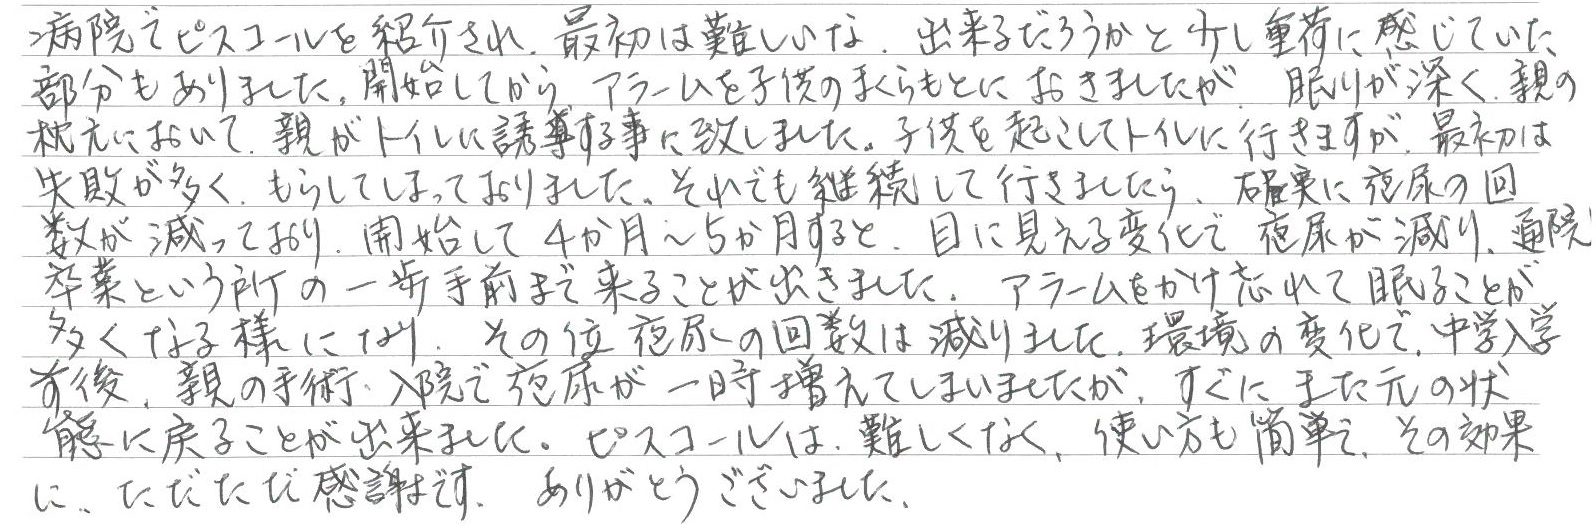 病院でピスコールを紹介され、最初は難しいな、出来るだろうかと少し重荷に感じていた
部分もありました。開始してから、アラームを子供のまくらもとにおきましたが、眠りが深く、親の
枕元において、親がトイレに誘導する事に致しました。子供を起こしてトイレに行きますが、最初は
失敗が多く、もらしてしまっておりました。それでも継続して行きましたら、確実に夜尿の回
数が減っており、開始して4か月～5か月すると、目に見える変化で夜尿が減り、通院
卒業という所の一歩手前まで来ることが出きました。アラームをかけ忘れて眠ることが
多くなる様になり、その位夜尿の回数は減りました。環境の変化で、中学入学
前後、親の手術、入院で夜尿が一時増えてしまいましたが、すぐにまた元の状
態に戻ることが出来ました。ピスコールは、難しくなく、使い方も簡単で、その効果
に、ただただ感謝です。ありがとうございました。